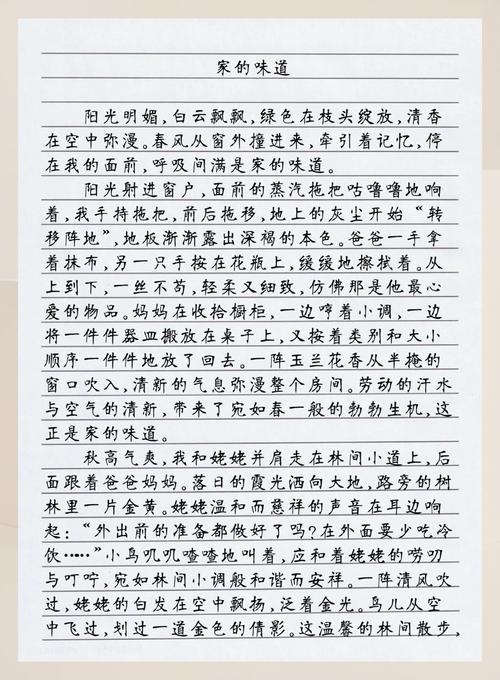 家的味道
阳光明媚，白云飘飘，绿色在枝头绽放，清香
在空中弥漫。春风从窗外撞进来，牵引着记忆，停
在我的面前，呼吸间满是家的味道。
阳光射进窗户，面前的蒸汽拖把咕噜噜地响
着，我手持拖把，前后拖移，地上的灰尘开始“转
移阵地”，地板渐渐露出深褐的本色。爸爸一手拿
着抹布，另一只手按在花瓶上，缓缓地擦拭着。从
上到下，一丝不苟，轻柔又细致，仿佛那是他最心
爱的物品。妈妈在收拾橱柜，一边哼着小调，一边
将一件件器皿搬放在桌子上，又按着类别和大小
顺序一件件地放了回去。一阵玉兰花香从半掩的
窗口吹入，清新的气息弥漫整个房间。劳动的汗水
与空气的清新，带来了宛如春一般的勃勃生机，这
正是家的味道。
秋高气爽，我和姥姥并肩走在林间小道上，后
面跟着爸爸妈妈。落日的霞光洒向大地，路旁的树
林里一片金黄。姥姥温和而慈祥的声音在耳边响
起：“外出前的准备都做好了吗？在外面要少吃冷
饮……”小鸟叽叽喳喳地叫着，应和着姥姥的劳叨
与叮咛，宛如林间小调般和谐而安祥。一阵清风吹
过，姥姥的白发在空中飘扬，泛着金光。鸟儿从空
中飞过，划过一道金色的倩影。这温馨的林间散步，